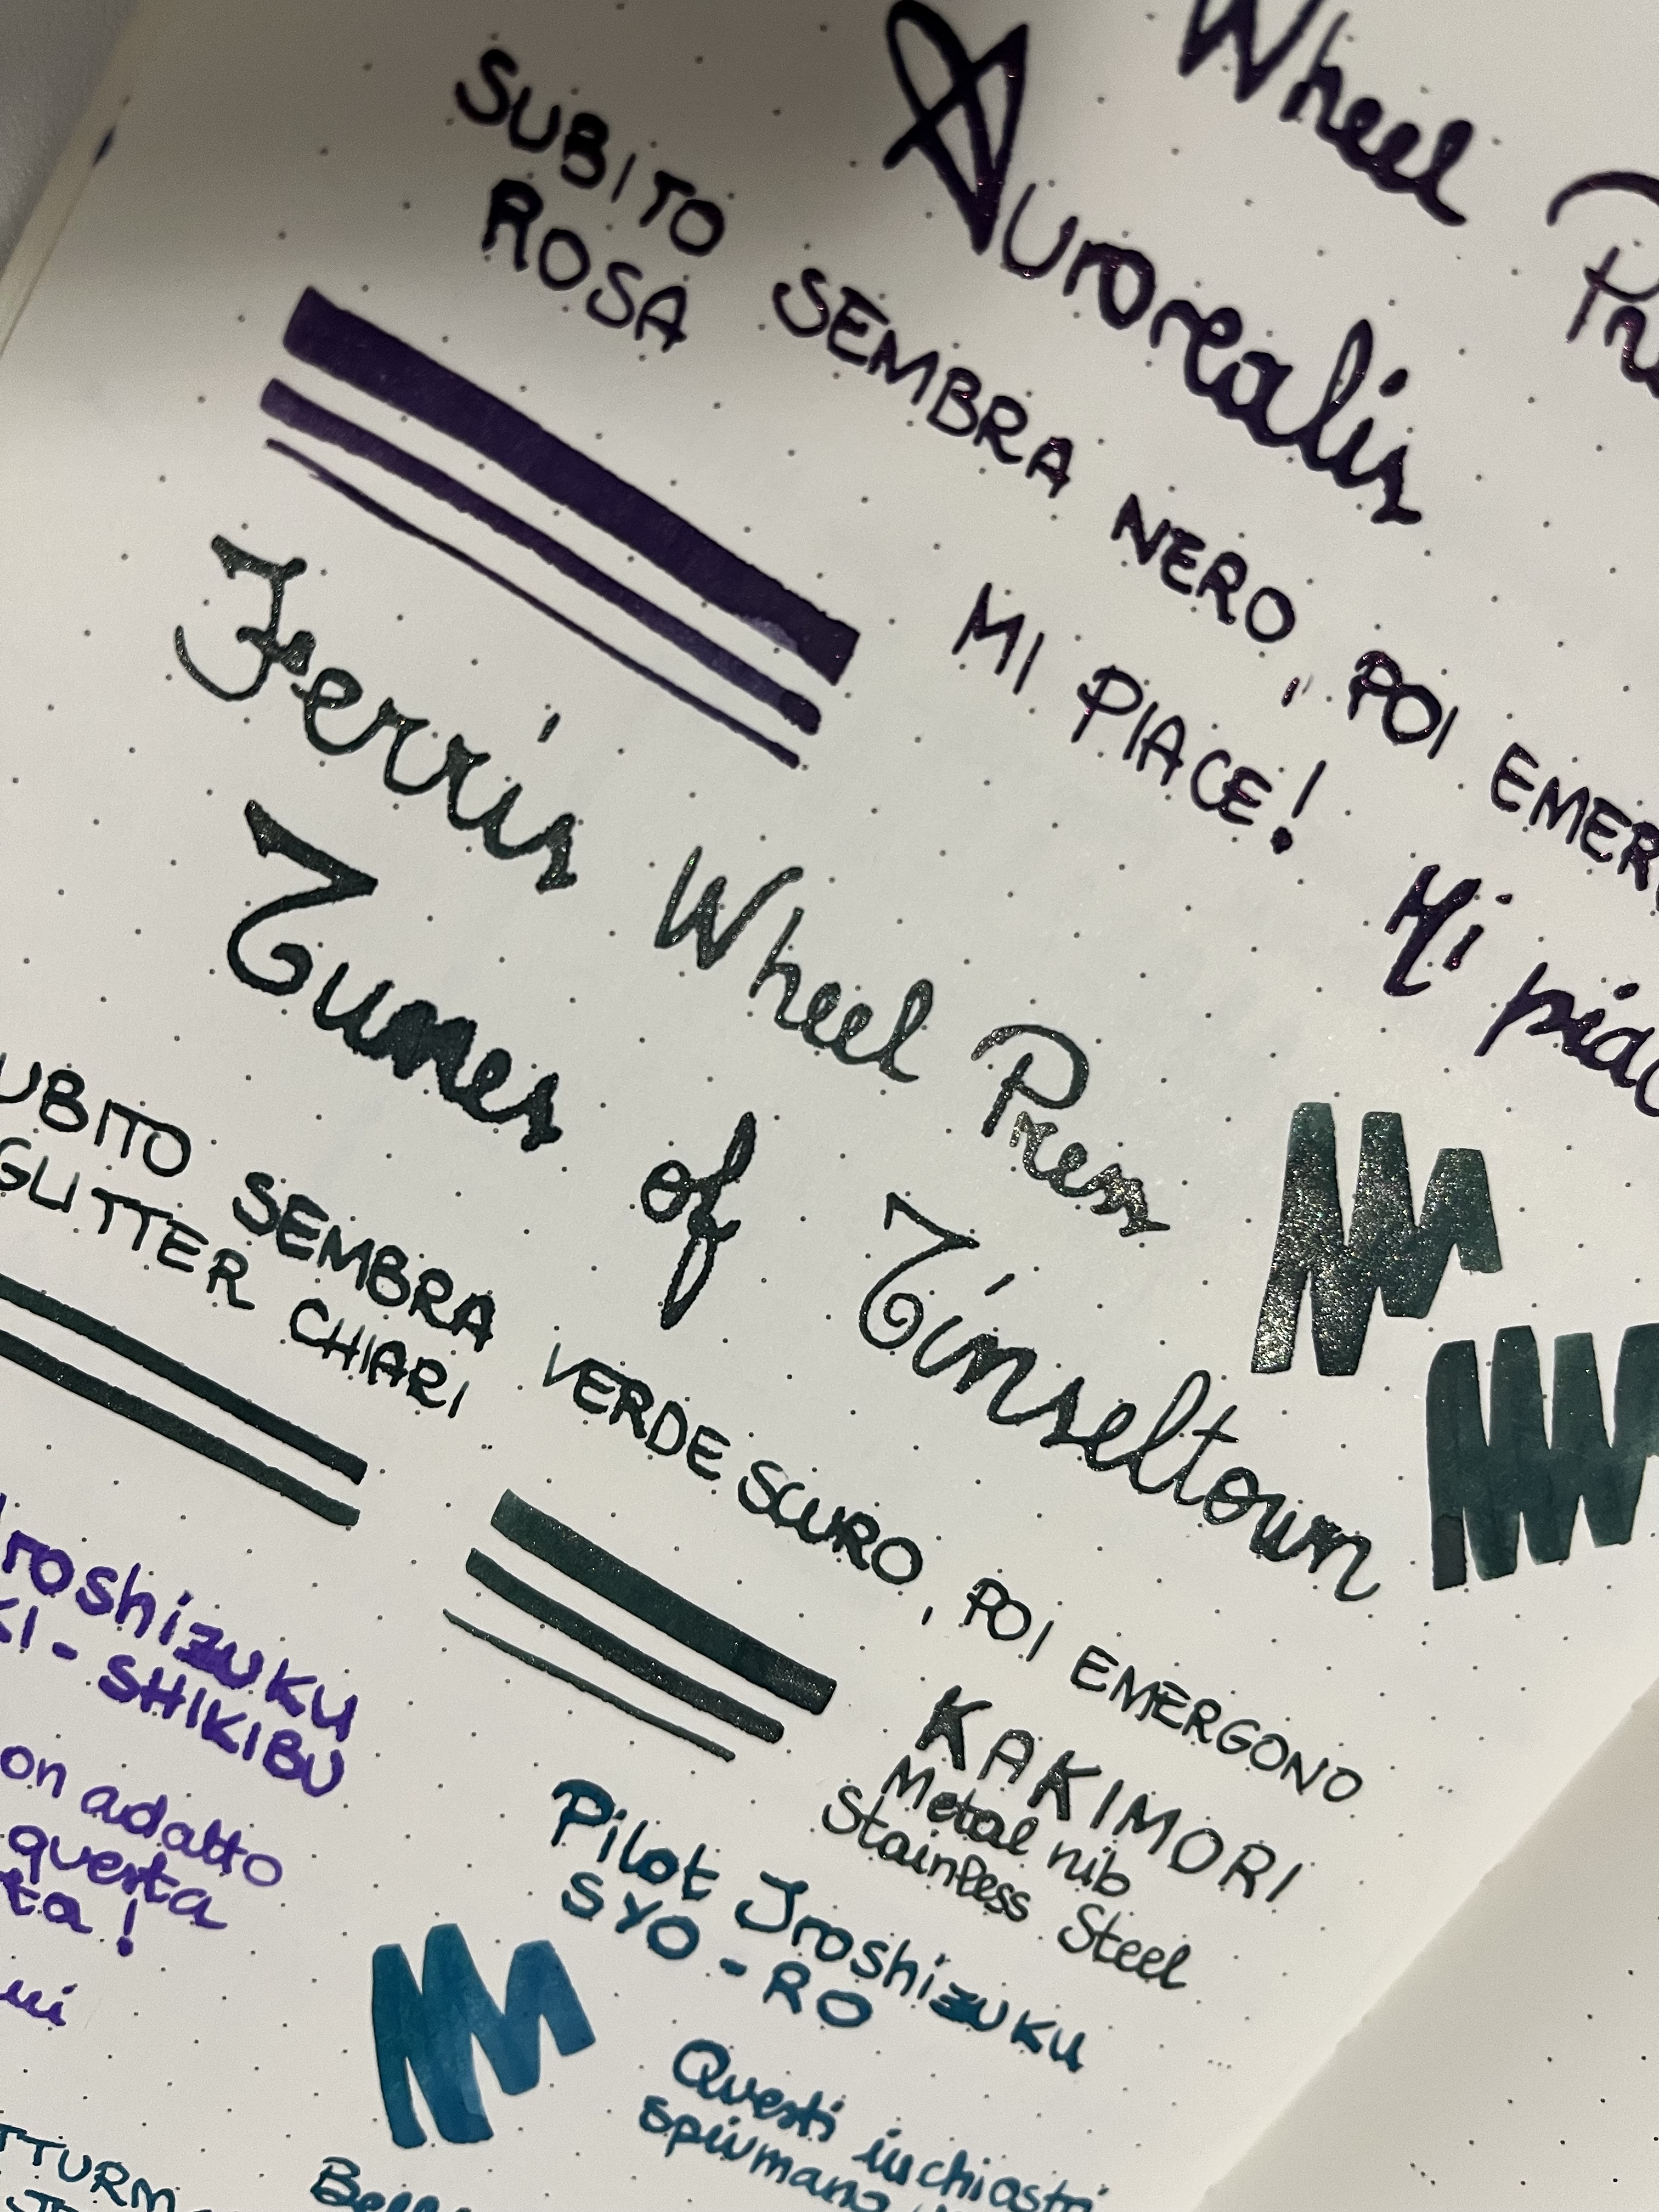 Wheel
Aurorealis
SUBITO SEMBRA NERO, POI
ROSA
MI PIACE!
Mi
Ferris Wheel Press
Tunes of Tinseltown
SEMBRA VERDE SCURO, POI EMERGONO
GLITTER CHIARI
KAKIMORI
Metal nib
Stainless Steel
SHIKIBU
adatto
questa
Pilot Iroshizuku
SYO-RO
Questi inchiostri